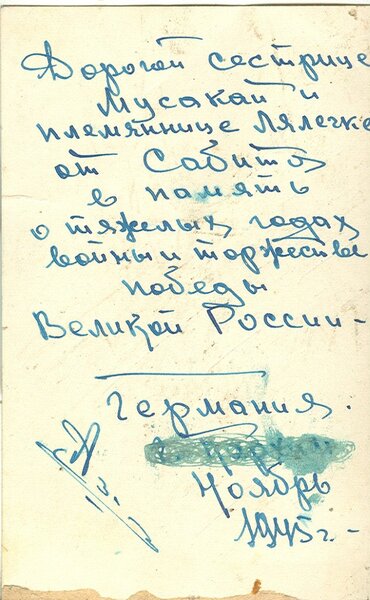 Дорогой сестрице
Мусакай и
племяннице Лялечке
от Сабита
в память
о тяжелых годах
войны и торжестве
победы
Великой России -
Германия.
г.
Ноябрь
1945 г. -